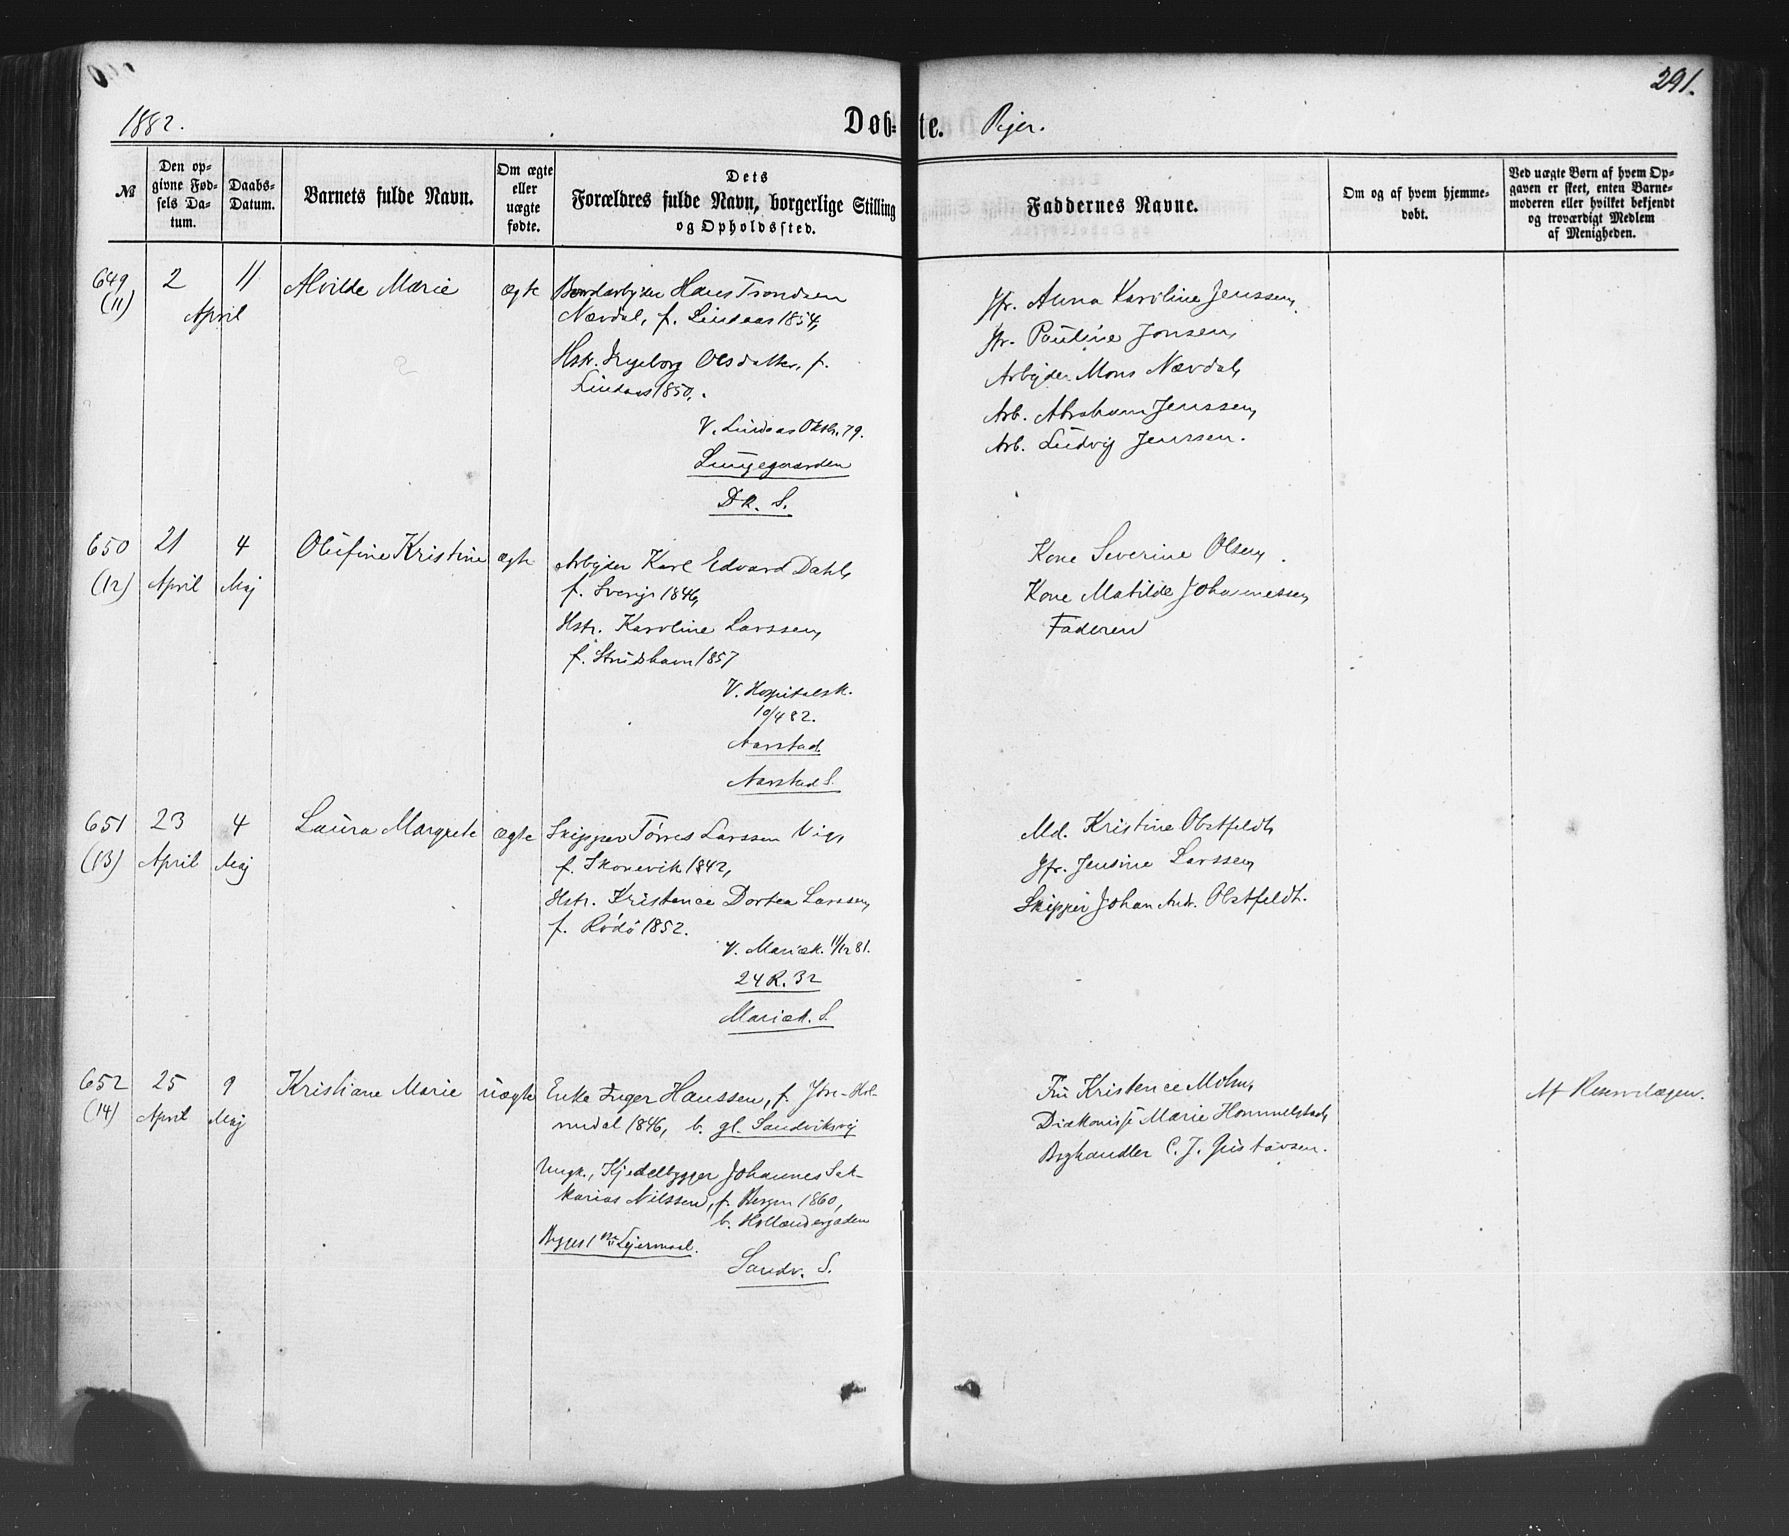 291.
1882.
Døb-te. Piger.
№
Den op-
givne Fød-
sels Da-
tum.
Daabs-
Datum.
Barnets fulde Navn.
Om ægte
eller
uægte
fødte.
Dets
Forældres fulde Navn, borgerlige Stilling
og Opholdssted.
Faddernes Navne.
Om og af hvem hjemme-
døbt.
Ved uægte Børn af hvem Op-
gaven er skeet, enten Barne-
moderen eller hvilket bekjendt
og troværdigt Medlem
af Menigheden.
649
(11)
2
April
11
Alvilde Marie
ægte
Hans Trondsen
Nævdal, f. Lindaas 1854,
Hstr. Ingeborg Olsdatter, f.
Lindaas 1850.
V. Lindaas Oktbr. 79.
Lungegaarden
Dk. S.
Jfr. Anna Karoline Jenssen,
Jfr. Pauline Jonsen,
Arbejder Mons Nævdal,
Arb. Abraham Jenssen,
Arb. Ludvig Jenssen.
650
(12)
21
April
4
Maj
Olufine Kristine
ægte
Arbejder Karl Edvard Dahl,
f. Sverig 1846,
Hstr. Karoline Larssen,
f. Strudshavn 1857
V. Hospitalsk.
10/4 82.
Aarstad.
Aarstad S.
Kone Severine Olsen,
Kone Matilde Johannessen,
Faderen
651
(13)
23
April
4
Maj
Laura Margrete
ægte
Skipper Tørres Larssen Vig,
f. Skonevik 1842,
Hstr. Kristence Dortea Larssen,
f. Rødø 1852.
V. Mariæk. 11/12 81.
24 R. 32
Mariæk. S.
Md. Kristine Obstfeldt,
Jfr. Jensine Larssen,
Skipper Johan Andr. Obstfeldt.
652
(14)
25
April
9
Maj
Kristiane Marie
uægte
Enke Inger Hanssen, f. Jøn-Hol-
mdal 1846, b. gl. Sandviksvej
Ungk., Kjedelbygger Johannes Sak-
karias Nilssen, f. Bergen 1860,
b. Hollændergaden
Begges 1ste Lejermaal.
Sandv. S.
Fru Kristence Mohn,
Diakonisse Marie Hommelstad,
Boghandler C. J. Gustavsen.
Af Reservelægen.